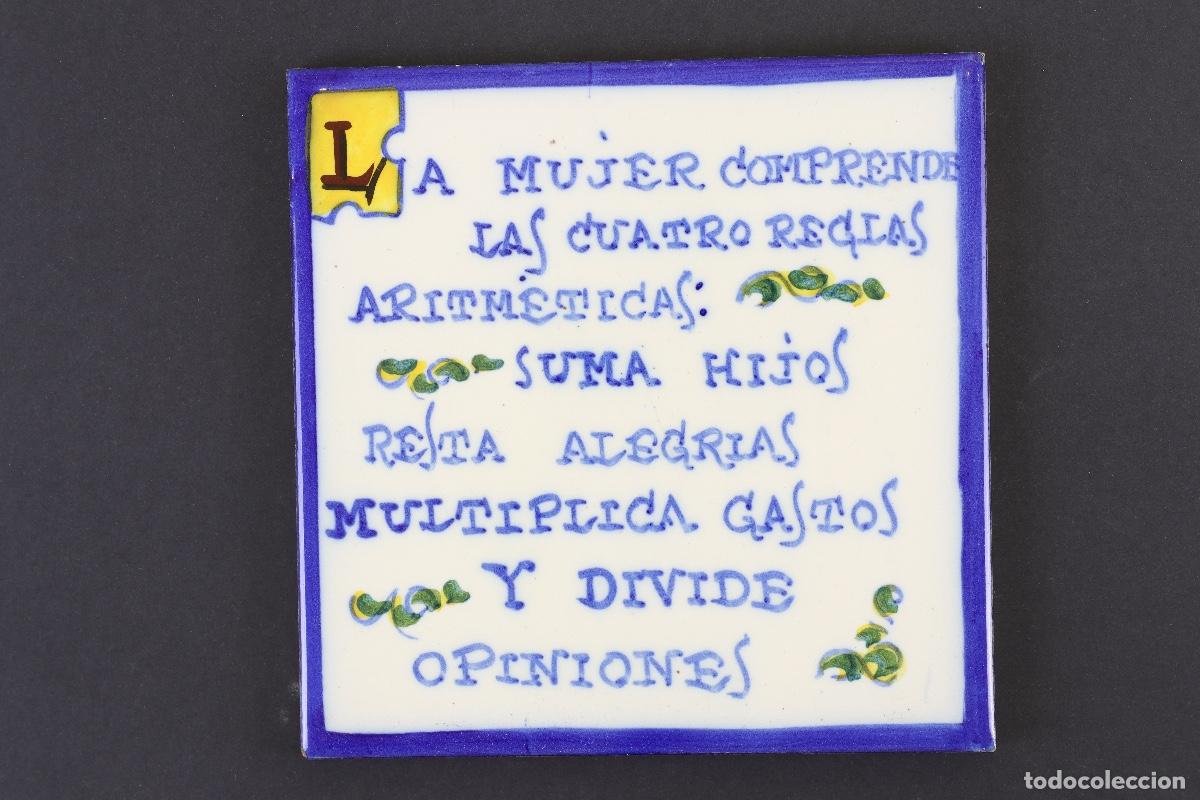 LA MUJER COMPRENDE
LAS CUATRO REGLAS
ARITMÉTICAS:
SUMA HIJOS
RESTA ALEGRIAS
MULTIPLICA GASTOS
Y DIVIDE
OPINIONES
todocoleccion